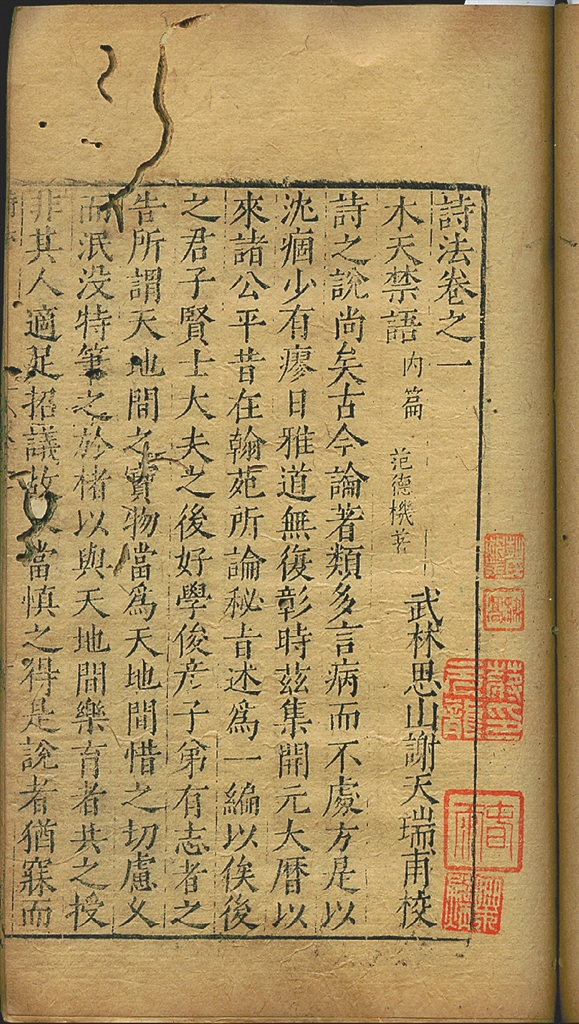 詩法卷之一
木天禁語 內篇 范德機著 武林思山謝天瑞甫校
詩之說尚矣古今論著類多言病而不處方是以
沈痼少有瘳日雅道無復彰時茲集開元大曆以
來諸公平昔在翰苑所論秘旨述爲一編以俟後
之君子賢士大夫之後好學俊彥子弟有志者之
告所謂天地間之寶物當爲天地間惜之切慮乂
而泯没特筆之於楮以與天地間樂育者共之授
非其人適足招議故又當慎之得是說者猶寐而